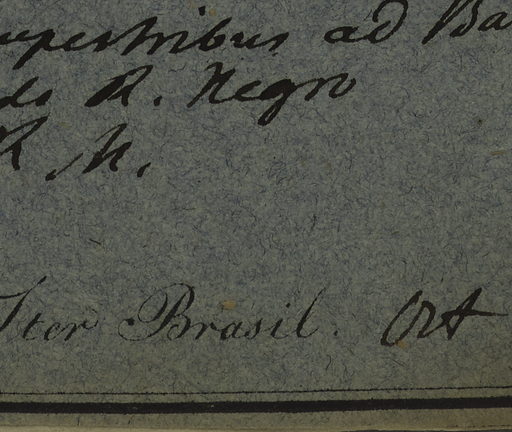 upestribus ad Ba
do R. Negro
R M.
Iter Brasil. Oct